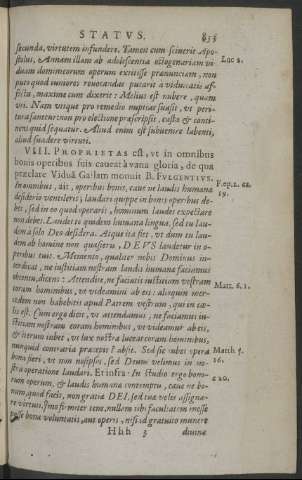 STATVS. 855
secunda, virtutem infundere. Tamen cum sciuerit Apo-
stolus, Annam illam ab adolescentia octogenariam vi- Luc 2.
duam dominicorum operum extitisse pronunciam, non
puto quod iuniores reuocandas putaret à viduitatis af-
fectu, maxime cum dixerit: Melius est nubere, quàm
vri. Nam vtique pro remedio nuptias suasit, vt peri-
tura saneretur: non pro electione præscripsit, casta & conti-
nens quid sequatur. Aliud enim est subuenire labenti,
aliud suadere virtuti.
VIII. PROPRIETAS est, vt in omnibus
bonis operibus suis caueat à vana gloria, de qua
præclarè Viduā Gallam monuit B. FVLGENTIVS.
In omnibus, ait, operibus bonis, caue ne laudis humanæ
desiderio ventileris; laudari quippe in bonis operibus de- 19.
bes, sed in eo quod operaris, hominum laudes expectare
non debes. Laudet te quidem humana lingua, sed tu lau-
dem à solo Deo desidera. Atque ita fiet, vt dum tu lau-
dem ab homine non quæsieris, DEVS laudetur in o-
peribus tuis. Memento, qualiter nobis Dominus in-
terdicat, ne iustitiam nostram laudis humanæ faciamus
intuitu, dicens: Attendite, ne faciatis iustitiam vestram Matt. 6. 1.
coram hominibus, vt videamini ab eis: alioquin mer-
cedem non habebitis apud Patrem vestrum, qui in cœ-
lis est. Cum ergo dicit, vt attendamus, ne faciamus iu-
stitiam nostram coram hominibus, vt videamur ab eis,
& iterum iubet, vt lux nostra luceat coram hominibus,
nunquid contraria præcepit? absit. Sed sic iubet opera Matth. 5.
bona fieri, vt non nosipsos, sed Deum velimus in no- 16.
stra operatione laudari. Et infra: In studio ergo bono- c. 20.
rum operum, & laudis humanæ contemptu, caue ne bo-
num quod facis, non gratia DEI, sed tuæ velis assigna-
re virtuti,
posse bona voluntatis, aut operis, nisi id gratuito munere
Hhh 3 diuinæ